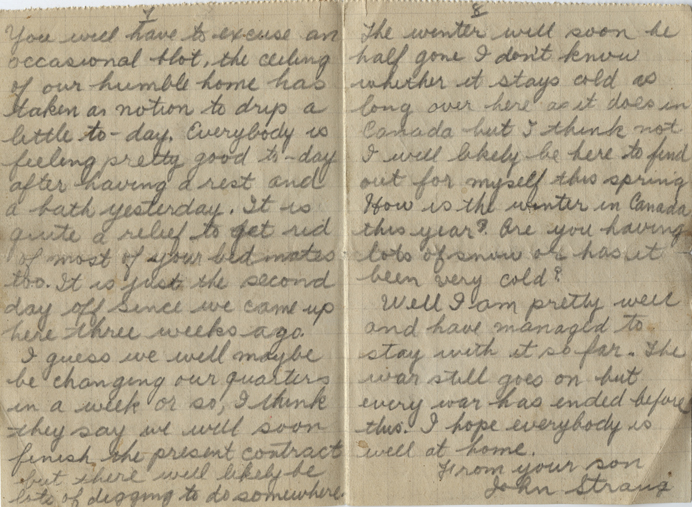 7
You will have to excuse an
occasional blot, the ceiling
of our humble home has
taken as notion to drip a
little to-day. Everybody is
feeling pretty good to-day
after having a rest and
a bath yesterday. It is
quite a relief to get rid
of most of your bed mates
too. It is just the second
day off since we came up
here three weeks ago.
I guess we will maybe
be changing our quarters
in a week or so, I think
they say we will soon
finish the present contract
but there will likely be
lots of digging to do somewhere
8
The winter will soon be
half gone I don't know
whether it stays cold as
long over here as it does in
Canada but I think not
I will likely be here to find
out for myself this spring
How is the winter in Canada
this year? Are you having
lots of snow or has it
been very cold?
Well I am pretty well
and have managed to
stay with it so far. The
war still goes on but
every war has ended before
this. I hope everybody is
well at home.
From your son
John